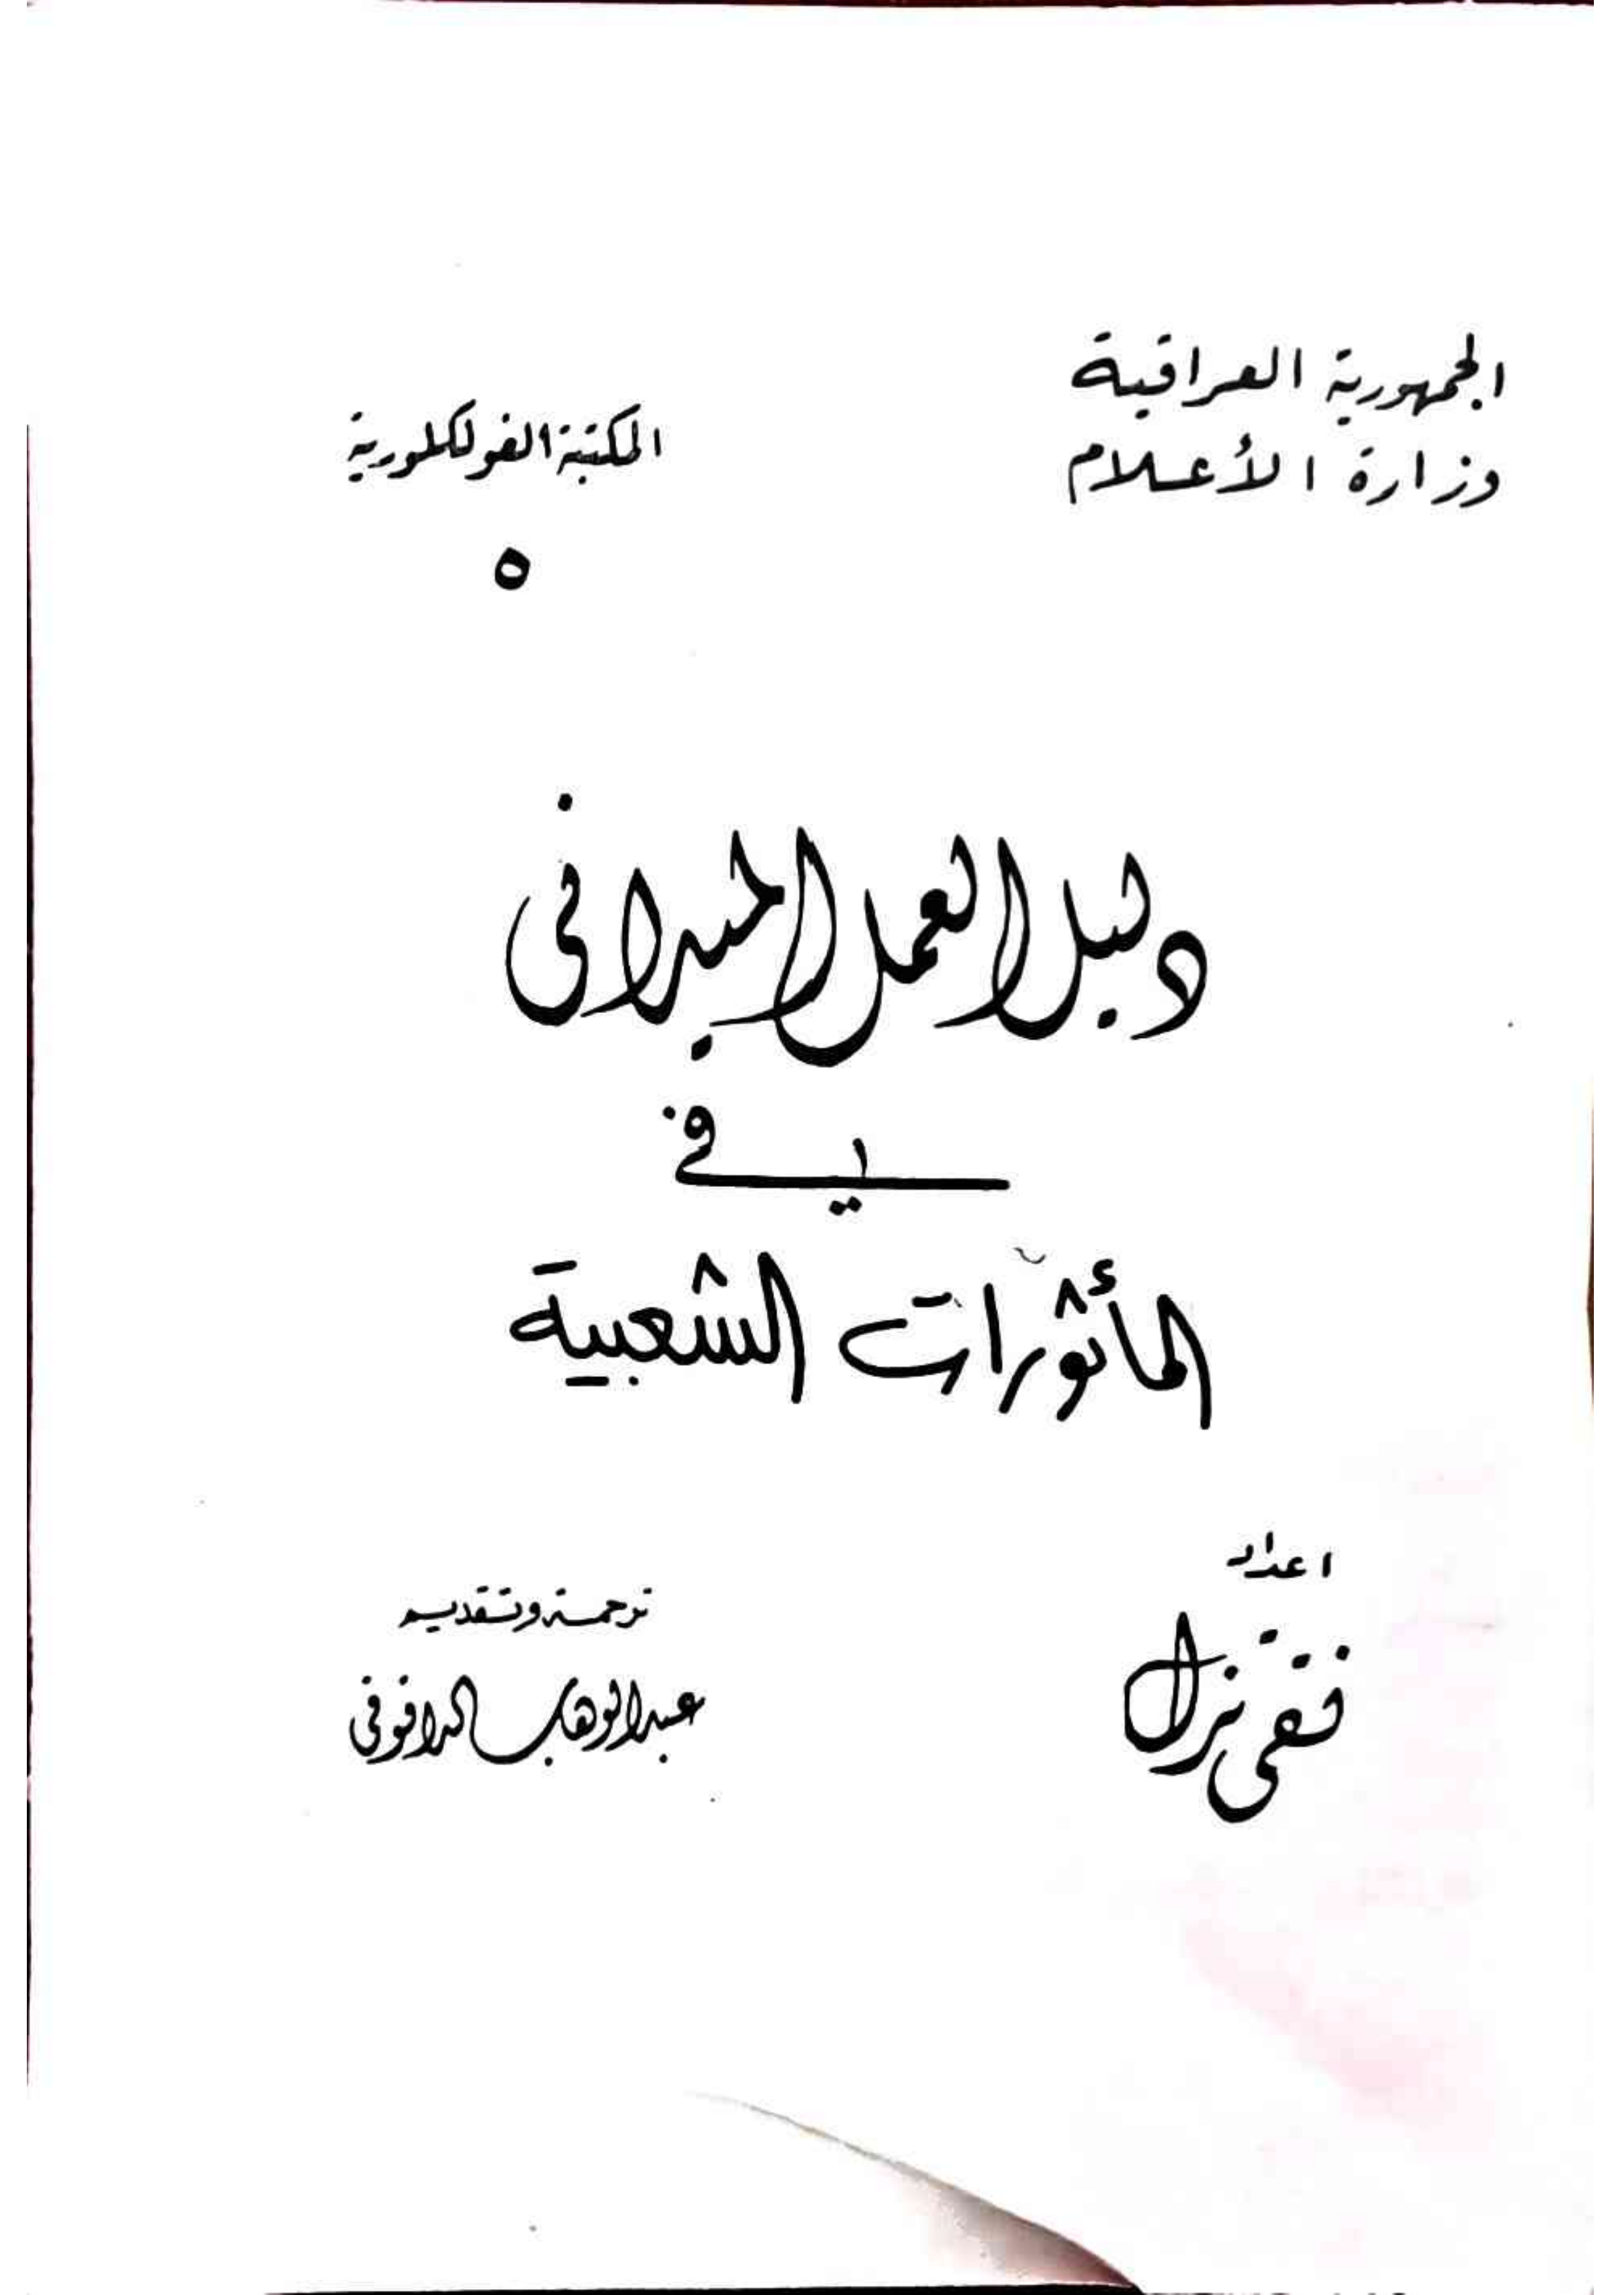 الجمهورية العراقية
وزارة الأعلام
المكتبة الفولكلورية
٥
دليل العمل الميداني
في
المأثورات الشعبية
اعداد
ترجمة وتقديم
عبدالوهاب الداقوقي